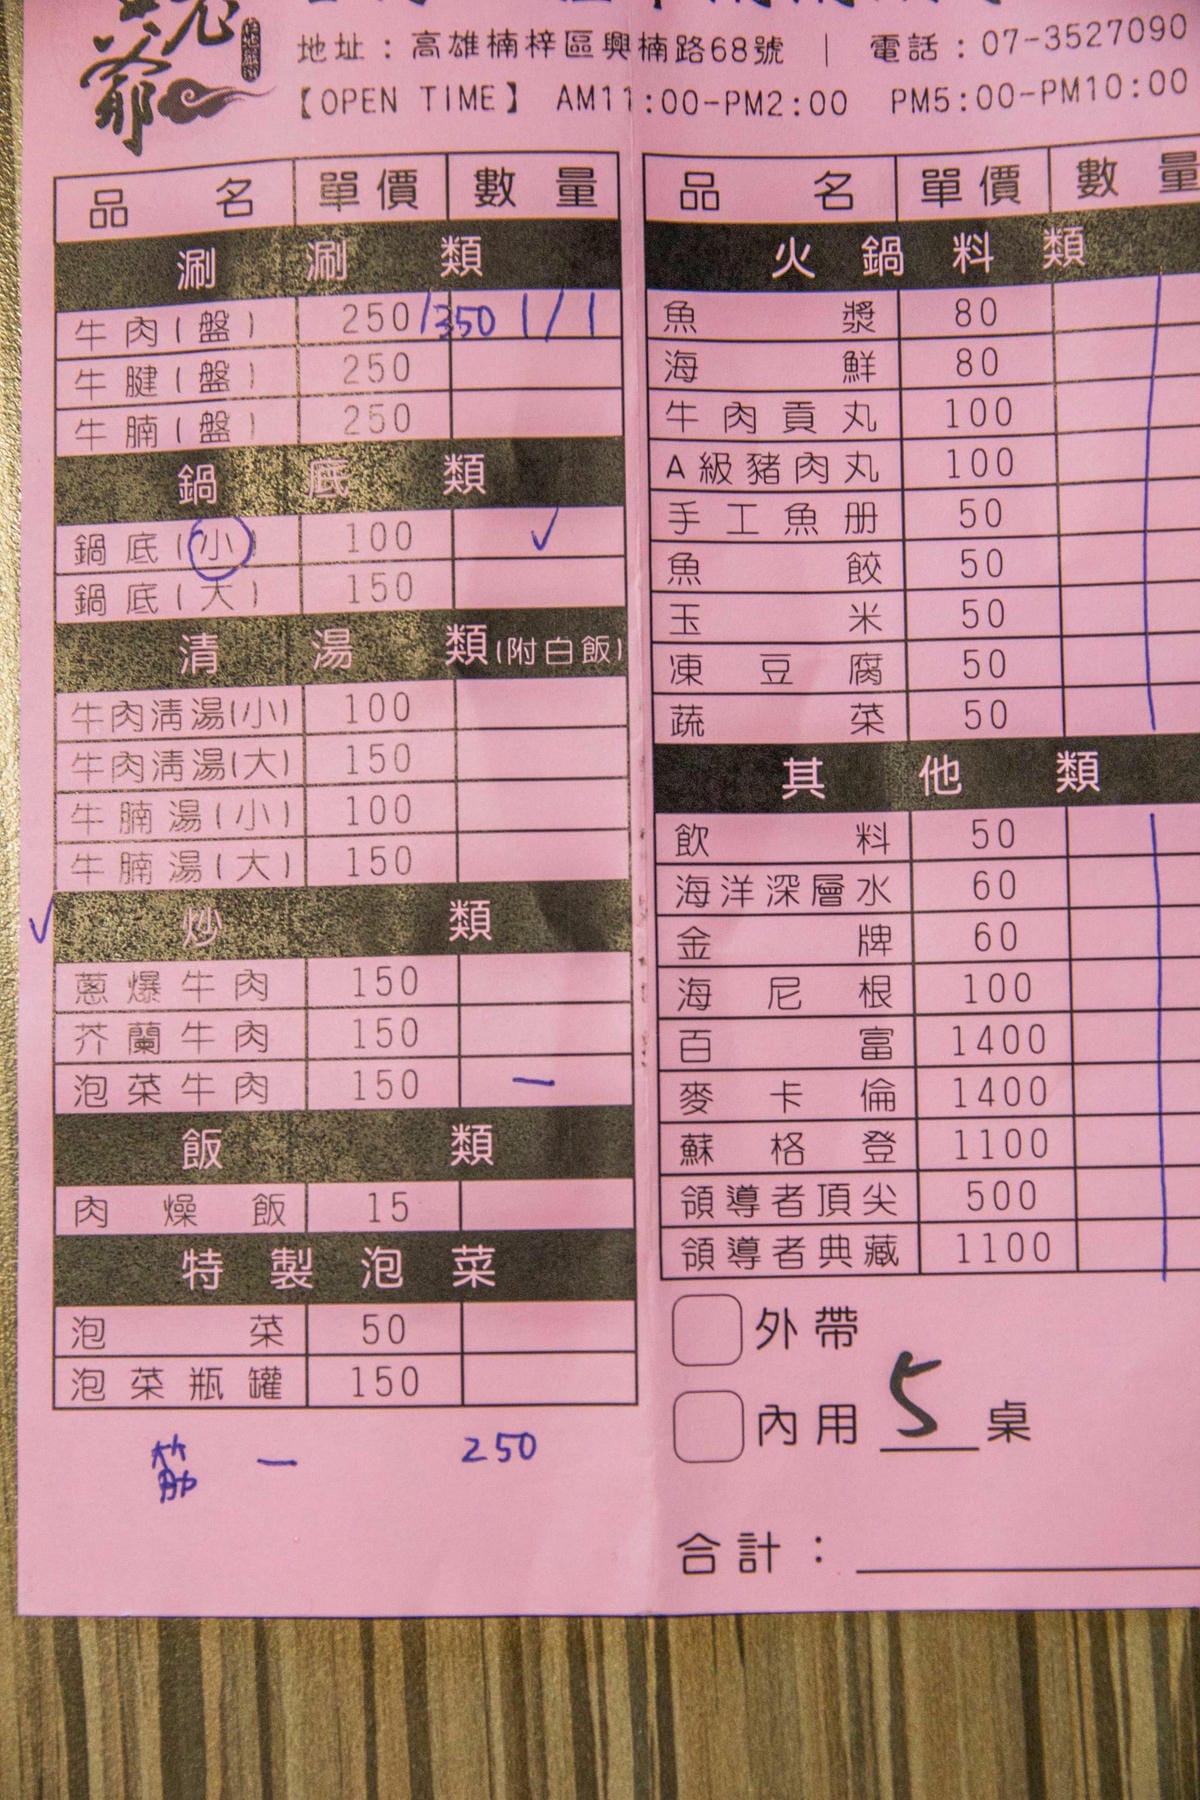 爺
地址：高雄楠梓區興楠路68號 | 電話：07-3527090
【OPEN TIME】 AM11:00-PM2:00 PM5:00-PM10:00
品名 單價 數量
涮涮類
牛肉(盤) 250/350 1/1
牛腱(盤) 250
牛腩(盤) 250
鍋底類
鍋底(小) 100 ✓
鍋底(大) 150
清湯類(附白飯)
牛肉清湯(小) 100
牛肉清湯(大) 150
牛腩湯(小) 100
牛腩湯(大) 150
✓ 炒類
蔥爆牛肉 150
芥蘭牛肉 150
泡菜牛肉 150 一
飯類
肉燥飯 15
特製泡菜
泡菜 50
泡菜瓶罐 150
筋 一 250
品名 單價 數量
火鍋料類
魚漿 80
海鮮 80
牛肉貢丸 100
A級豬肉丸 100
手工魚册 50
魚餃 50
玉米 50
凍豆腐 50
蔬菜 50
其他類
飲料 50
海洋深層水 60
金牌 60
海尼根 100
百富 1400
麥卡倫 1400
蘇格登 1100
領導者頂尖 500
領導者典藏 1100
外帶
內用 5 桌
合計：